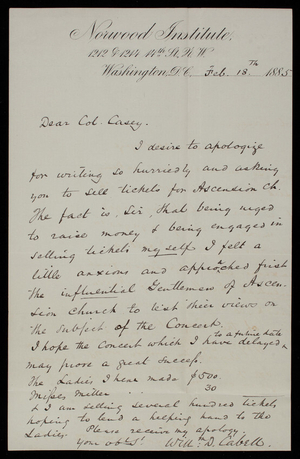 Norwood Institute,
1212 & 1214 14th St. N.W.
Washington D.C. Feb. 18th 1885
Dear Col. Casey.
I desire to apologize
for writing so hurriedly and asking
you to sell tickets for Ascension Ch.
The fact is, Sir, that being urged
to raise money & being engaged in
selling tickets myself I felt a
little anxious and approached first
the influential Gentlemen of Ascen-
sion Church to test their views on
the subject of the Concert.
to a future date
I hope the Concert which I have delayed
may prove a great success.
The Ladies I hear made $500.
Misses Miller . . . 30
& I am selling several hundred tickets
hoping to lend a helping hand to the
Ladies. Please receive my apology,
Your obt. Wm. D. Cabell.